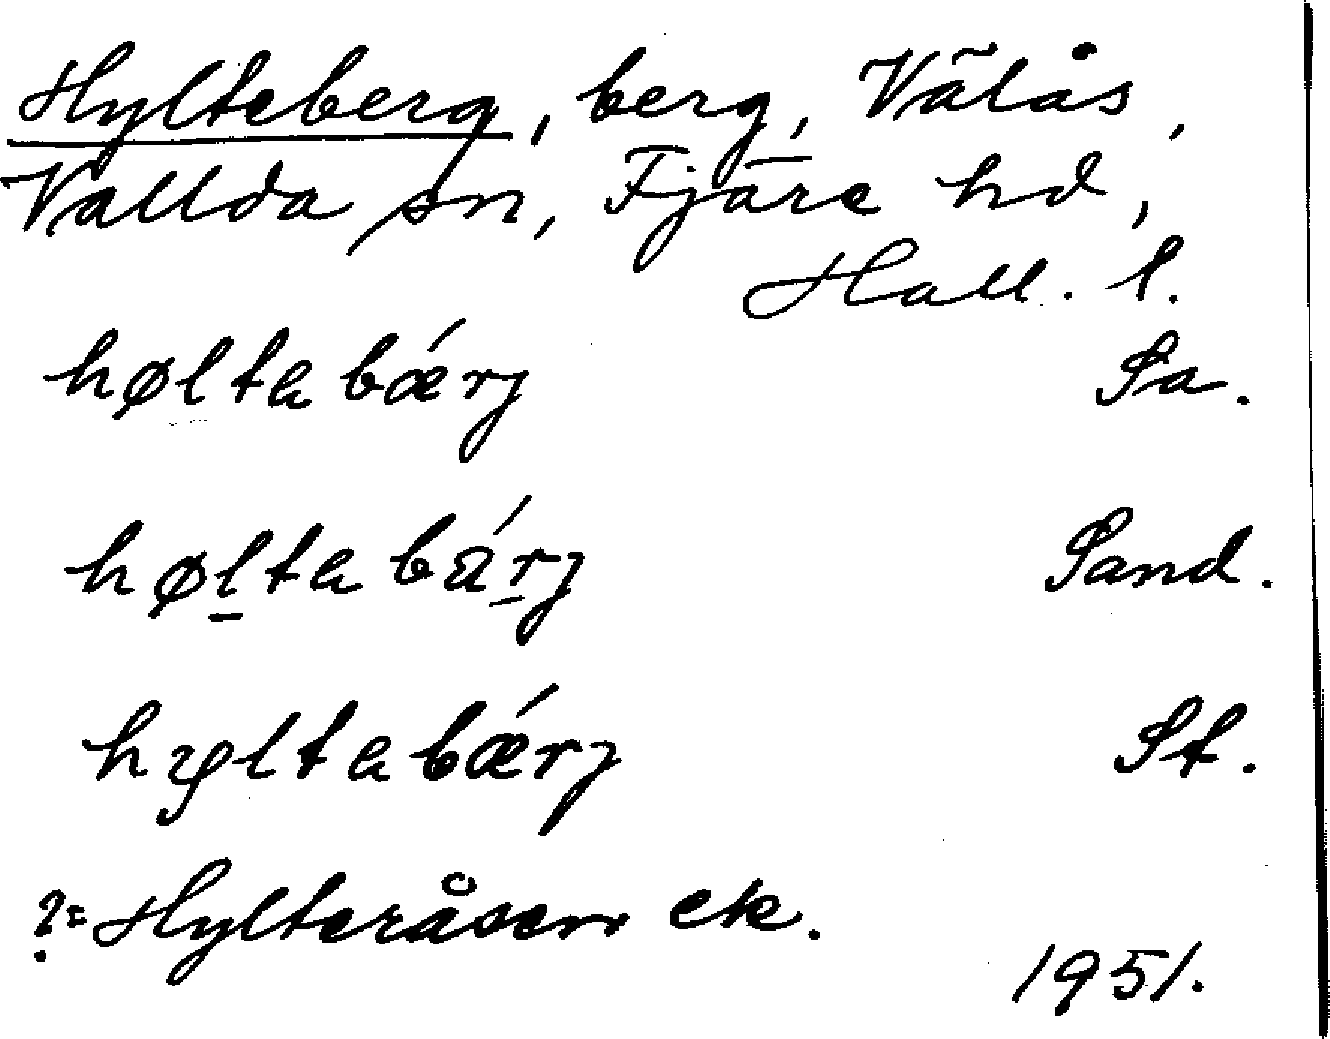 Hylteberg, berg, Välås,
Vallda sn, Fjäre hd,
Hall. l.
høltabǽrj Sa.
høltabárj Sand.
hyltabǽrj St.
?= Hylteråsen ek.
1951.